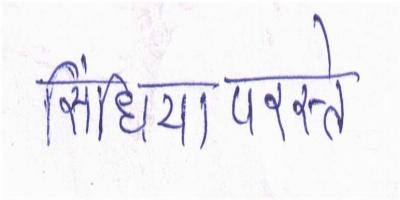 सिंधिया परस्ते